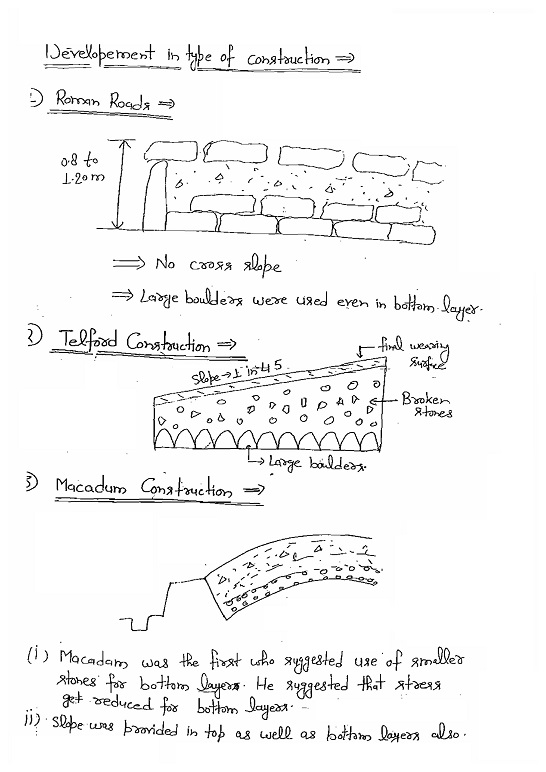 Developement in type of construction ⇒
1) Roman Roads ⇒
0.8 to
1.20m
⇒ No cross slope
⇒ Large boulders were used even in bottom layer.
2) Telford Construction ⇒
final wearing
surface
Slope → 1 in 45
Broken
stones
Large boulders.
3) Macadum Construction ⇒
(i) Macadam was the first who suggested use of smaller
stones for bottom layers. He suggested that stress
get reduced for bottom layers.
ii) Slope was provided in top as well as bottom layers also.